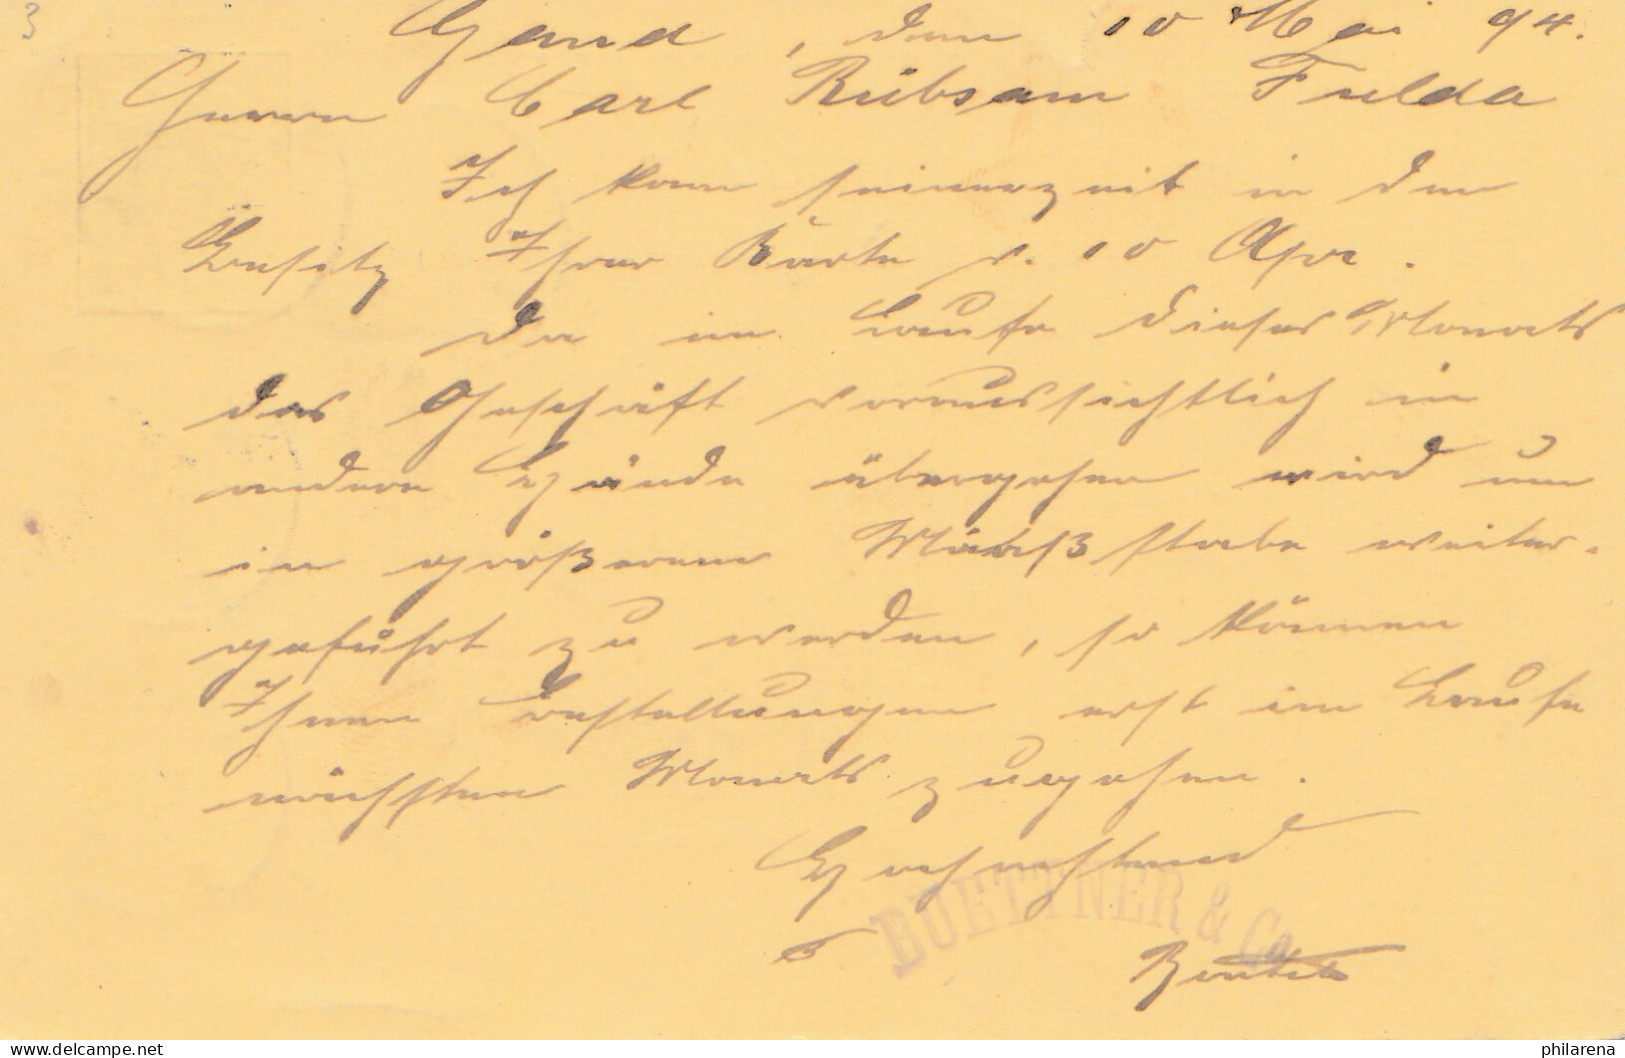 Gand, den 10 Mai 94.
Herrn Carl Rübsam Fulda
Ich kam seinerzeit in den
Besitz Ihrer Karte v. 10 Apr.
Da im Laufe dieses Monats
das Geschäft voraussichtlich in
andere Hände übergehen wird um
in größerem Maaßstabe weiter-
geführt zu werden, so können
Ihnen Bestellungen erst im Laufe
nächsten Monats zugehen.
Hochachtend
BUETTNER & Co
www.delcampe.net
philarena
3